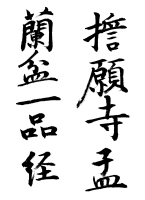 誓願寺盂
蘭盆一品経